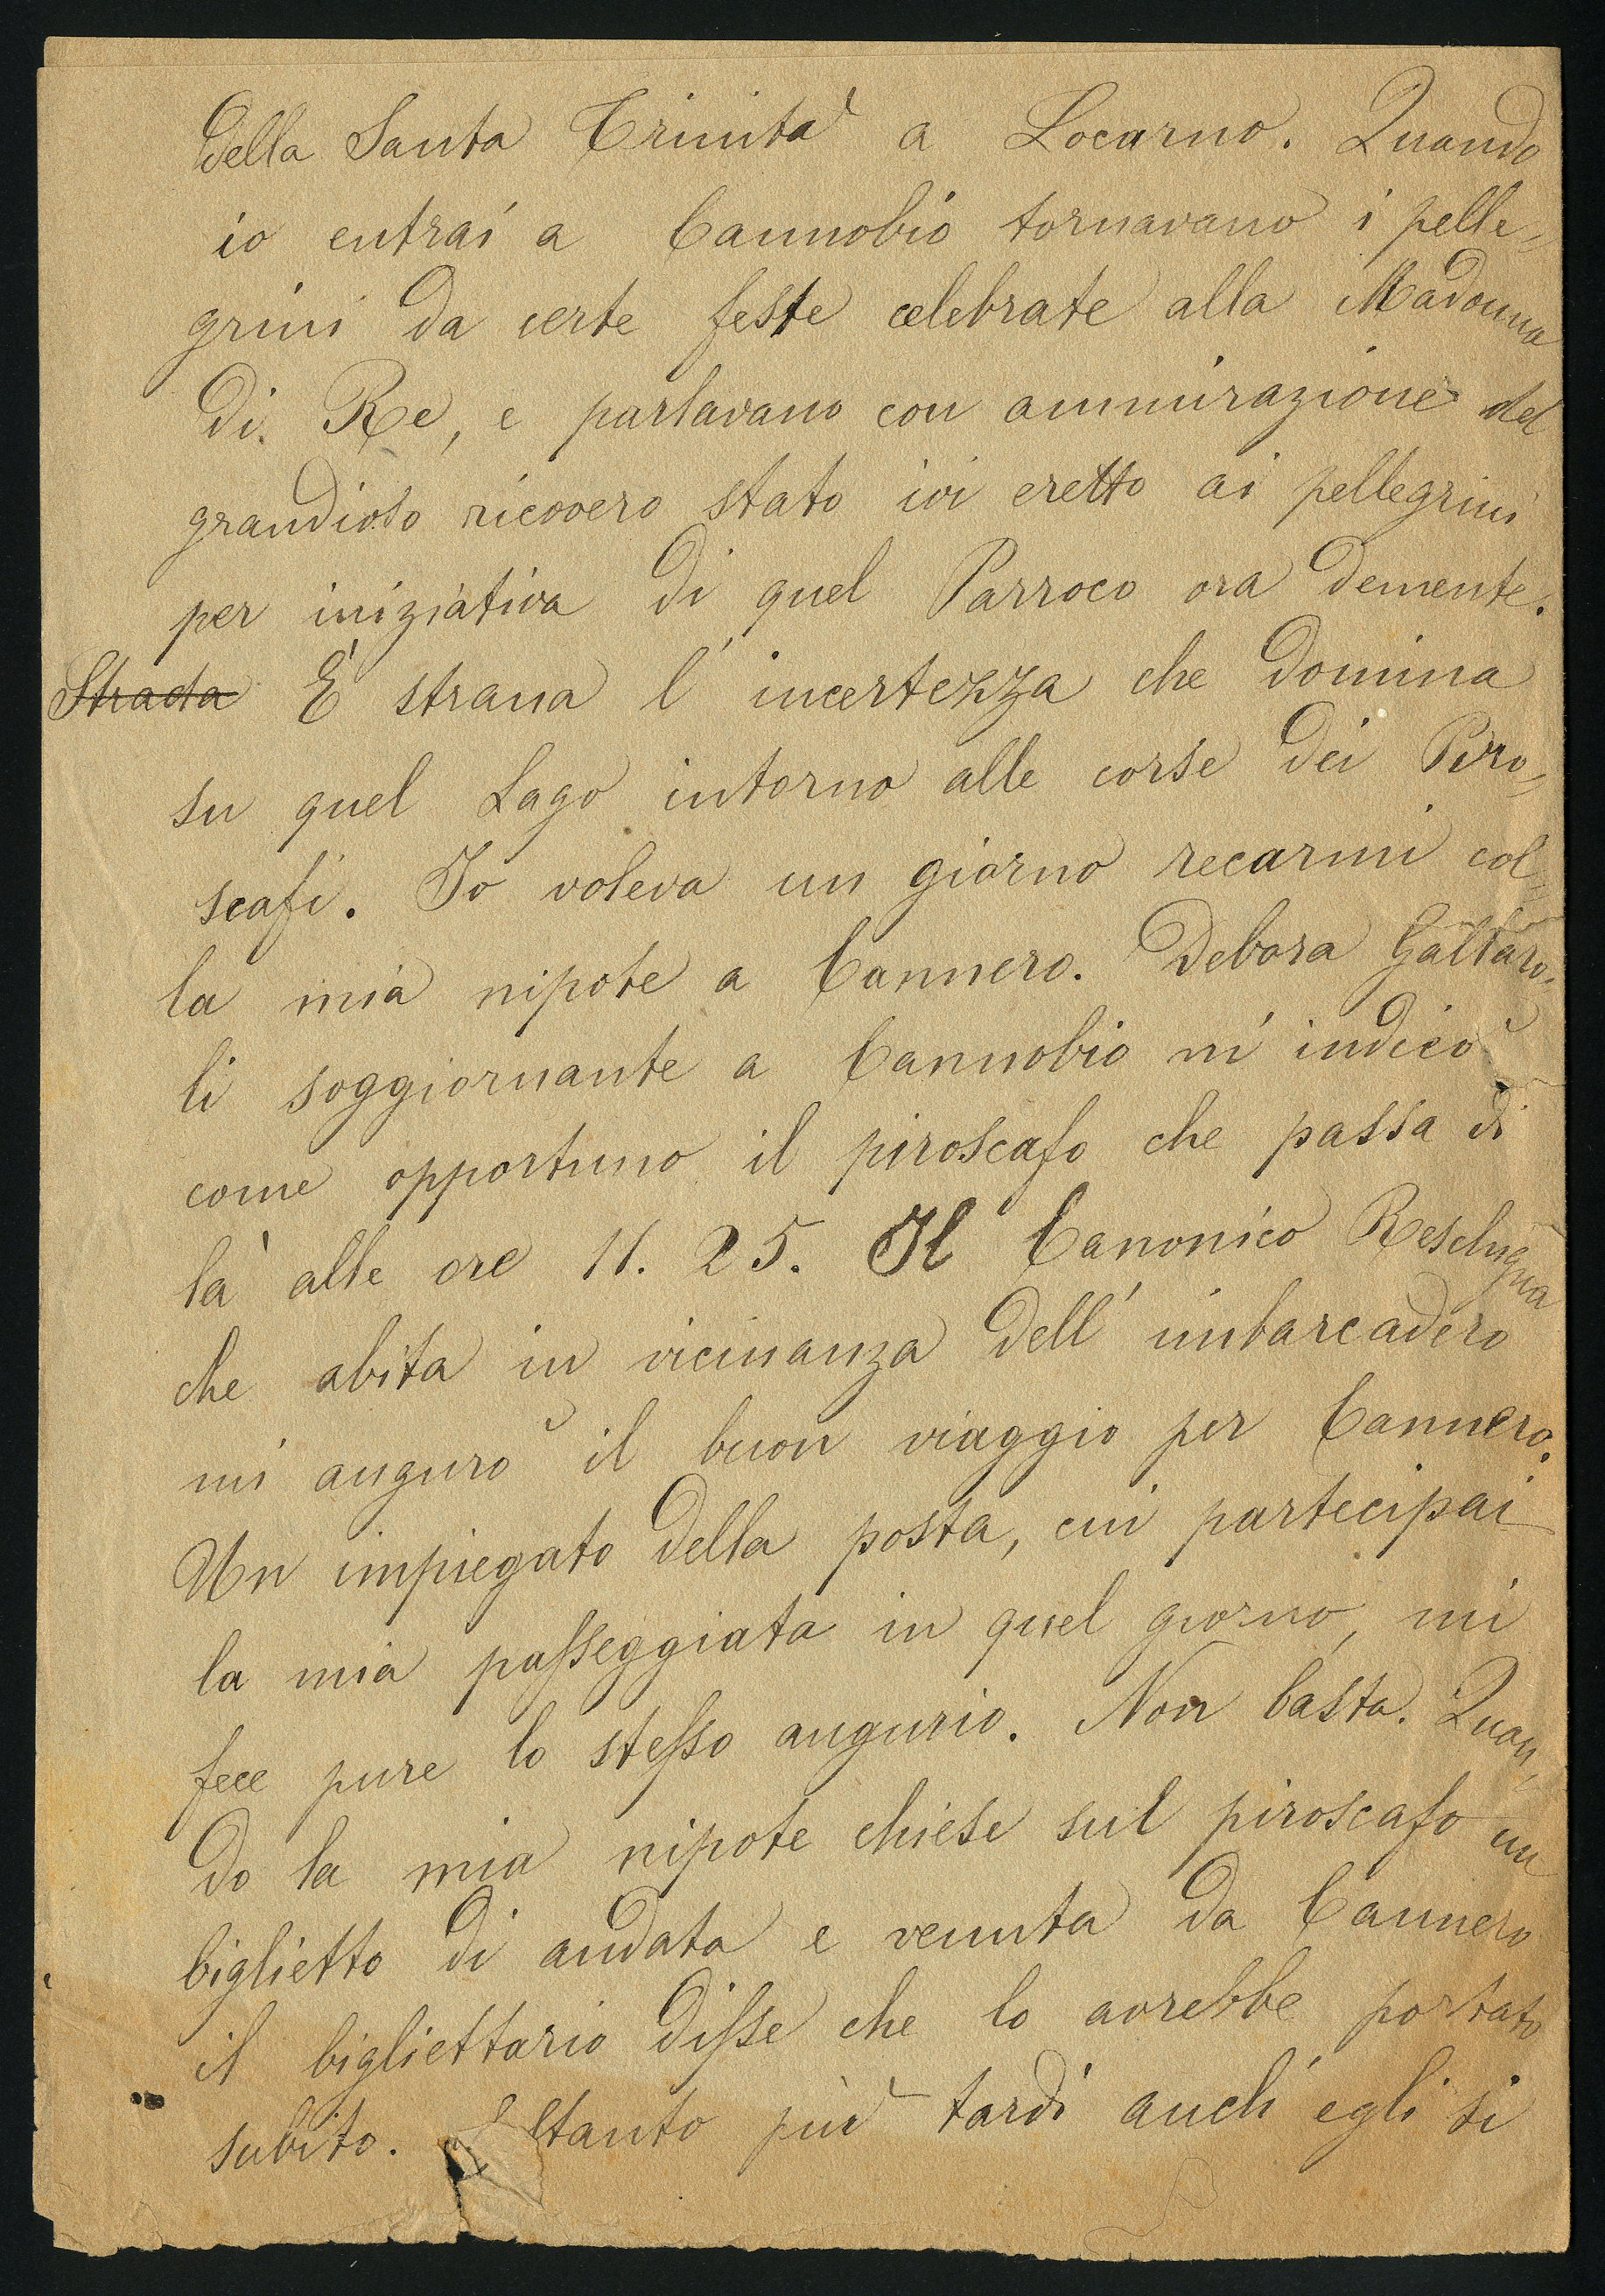 della Santa Trinità a Locarno. Quando
io entrai a Cannobio tornavano i pelle=
grini da certe feste celebrate alla Madonna
di Re, e parlavano con ammirazione del
grandioso ricovero stato ivi eretto ai pellegrini
per iniziativa di quel Parroco ora demente.
Strada È strana l'incertezza che domina
su quel Lago intorno alle corse dei Piro=
scafi. Io voleva un giorno recarmi col=
la mia nipote a Cannero. Debora Gattaro=
li soggiornante a Cannobio m'indicò
come opportuno il piroscafo che passa di
là alle ore 11. 25. Il Canonico Reschigna
che abita in vicinanza dell'imbarcadero
mi augurò il buon viaggio per Cannero.
Un impiegato della posta, cui partecipai
la mia passeggiata in quel giorno, mi
fece pure lo stesso augurio. Non basta. Quan=
do la mia nipote chiese sul piroscafo un
biglietto di andata e venuta da Cannero
il bigliettario disse che lo avrebbe portato
subito. Soltanto più tardi anch'egli si